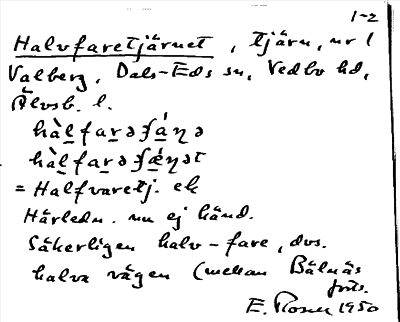 1-2
Halvfaretjärnet, tjärn, nr 1
Valberg, Dals-Eds sn, Vedbo hd,
Älvsb. l.
hàl̲far̲ə ʃä́ŋə
hàl̲far̲ə ʃǽ̲ŋət
= Halfvaretj. ek
Härledn. nu ej känd.
Säkerligen halv-fare, dvs.
halva vägen (mellan Bälnäs
forts.
E. Rosen 1950